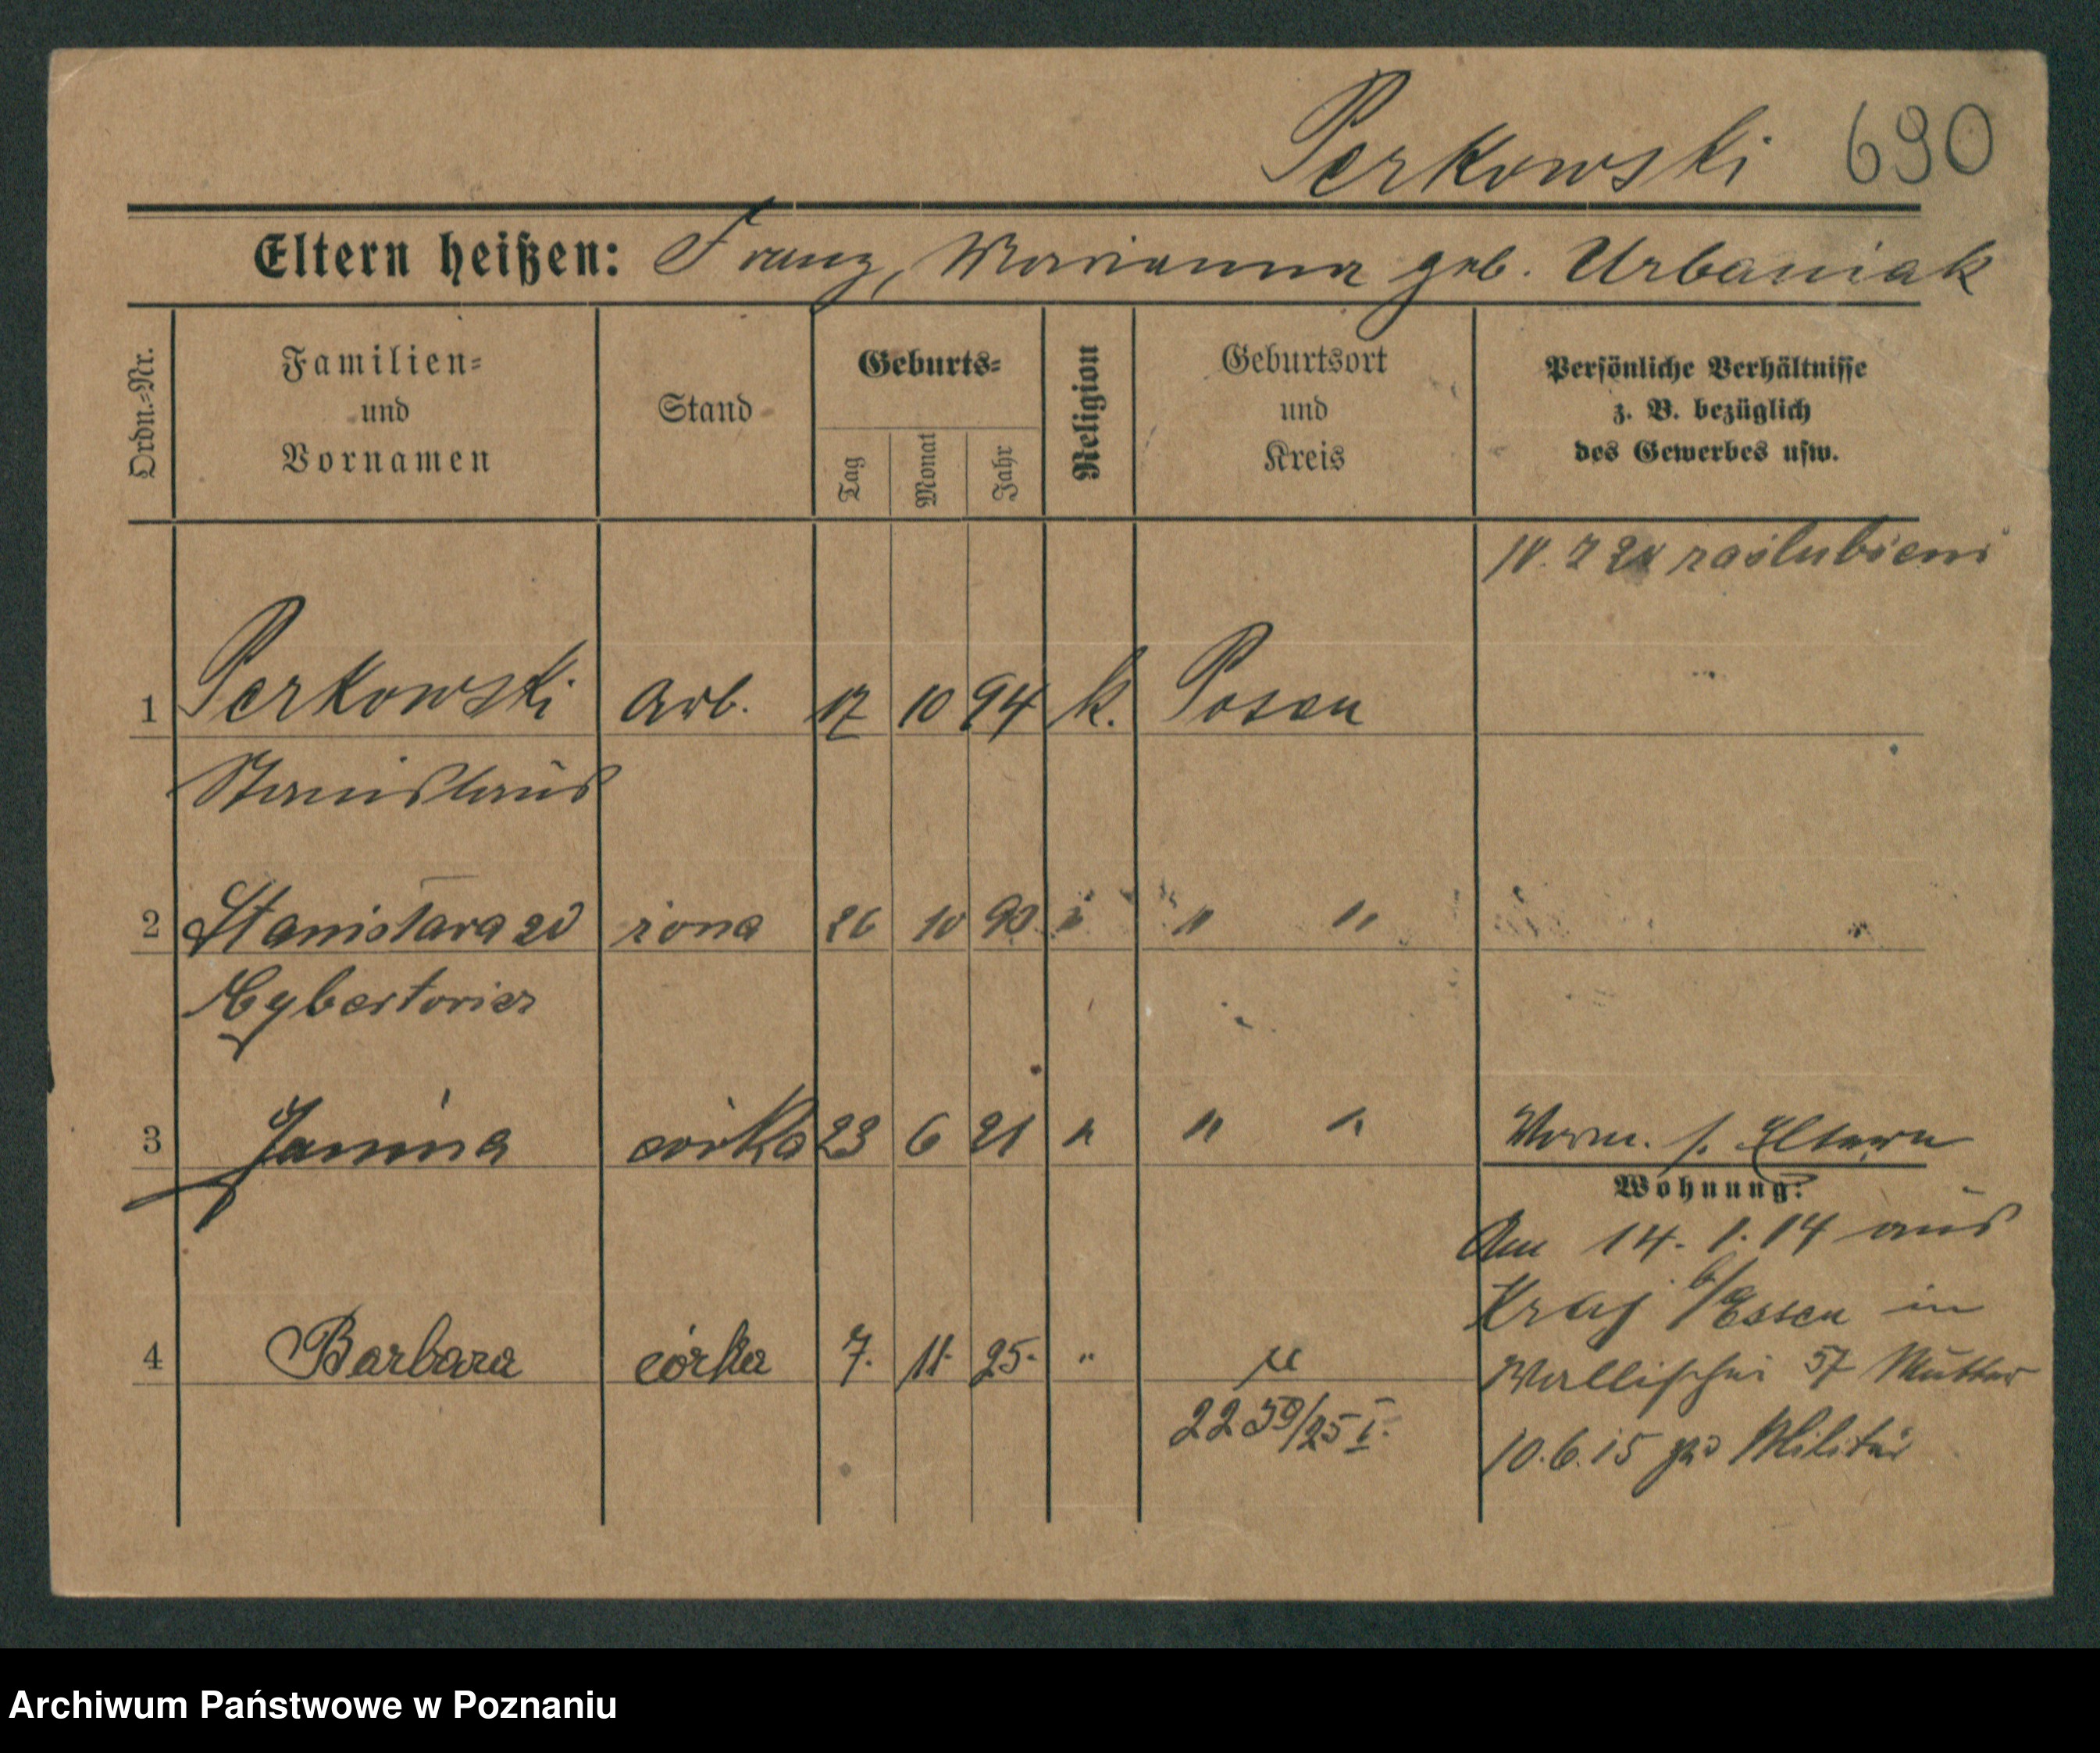 Perkowski 690
Eltern heißen: Franz, Marianna geb. Urbaniak
Ordn.-Nr.
Familien-
und
Vornamen
Stand
Geburts-
Tag
Monat
Jahr
Religion
Geburtsort
und
Kreis
Persönliche Verhältnisse
z. B. bezüglich
des Gewerbes usw.
zaślubieni
1 Perkowski Arb. 17 10 94 k. Posen
Stanislaus
2 Stanisława zd żona 26 10 90 " " "
3 Janina córka 23 6 21 " " " Worm. s. Eltern
Wohnung:
Am 14. 1. 14 aus
Kray b/Essen in
4 Barbara córka 7. 11. 25. " " Wallischei 57 Mutter
2259/25 I. 10.6.15 zu Militär
Archiwum Państwowe w Poznaniu